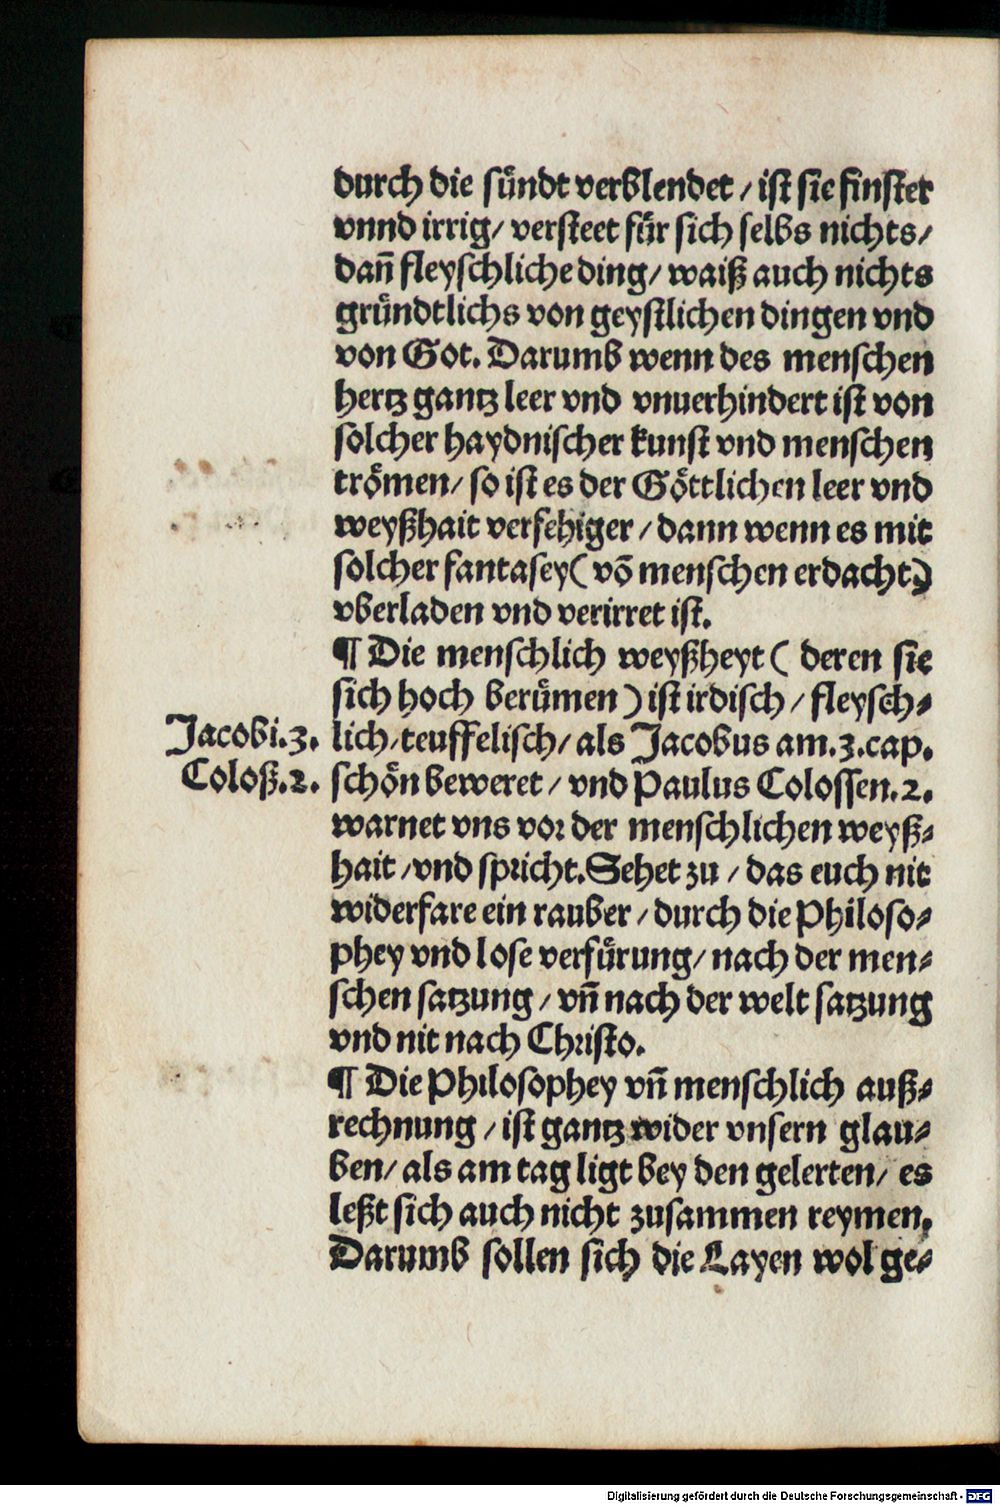 durch die sündt verblendet / ist sie finster
vnnd irrig / versteet für sich selbs nichts /
dan̄ fleyschliche ding / waiß auch nichts
gründtlichs von geystlichen dingen vnd
von Got. Darumb wenn des menschen
hertz gantz leer vnd vnuerhindert ist von
solcher haydnischer kunst vnd menschen
trömen / so ist es der Göttlichen leer vnd
weyßhait verfehiger / dann wenn es mit
solcher fantasey ( vō menschen erdacht )
vberladen vnd verirret ist.
¶ Die menschlich weyßheyt ( deren sie
sich hoch berümen ) ist irdisch / fleysch⸗
Jacobi.3. lich / teuffelisch / als Jacobus am.3.cap.
Coloß.2. schön beweret / vnd Paulus Colossen.2.
warnet vns vor der menschlichen weyß⸗
hait / vnd spricht. Sehet zu / das euch nit
widerfare ein rauber / durch die Philoso⸗
phey vnd lose verfürung / nach der men⸗
schen satzung / vn̄ nach der welt satzung
vnd nit nach Christo.
¶ Die Philosophey vn̄ menschlich auß⸗
rechnung / ist gantz wider vnsern glau⸗
ben / als am tag ligt bey den gelerten / es
leßt sich auch nicht zusammen reymen.
Darumb sollen sich die Layen wol ge⸗
Digitalisierung gefördert durch die Deutsche Forschungsgemeinschaft - DFG